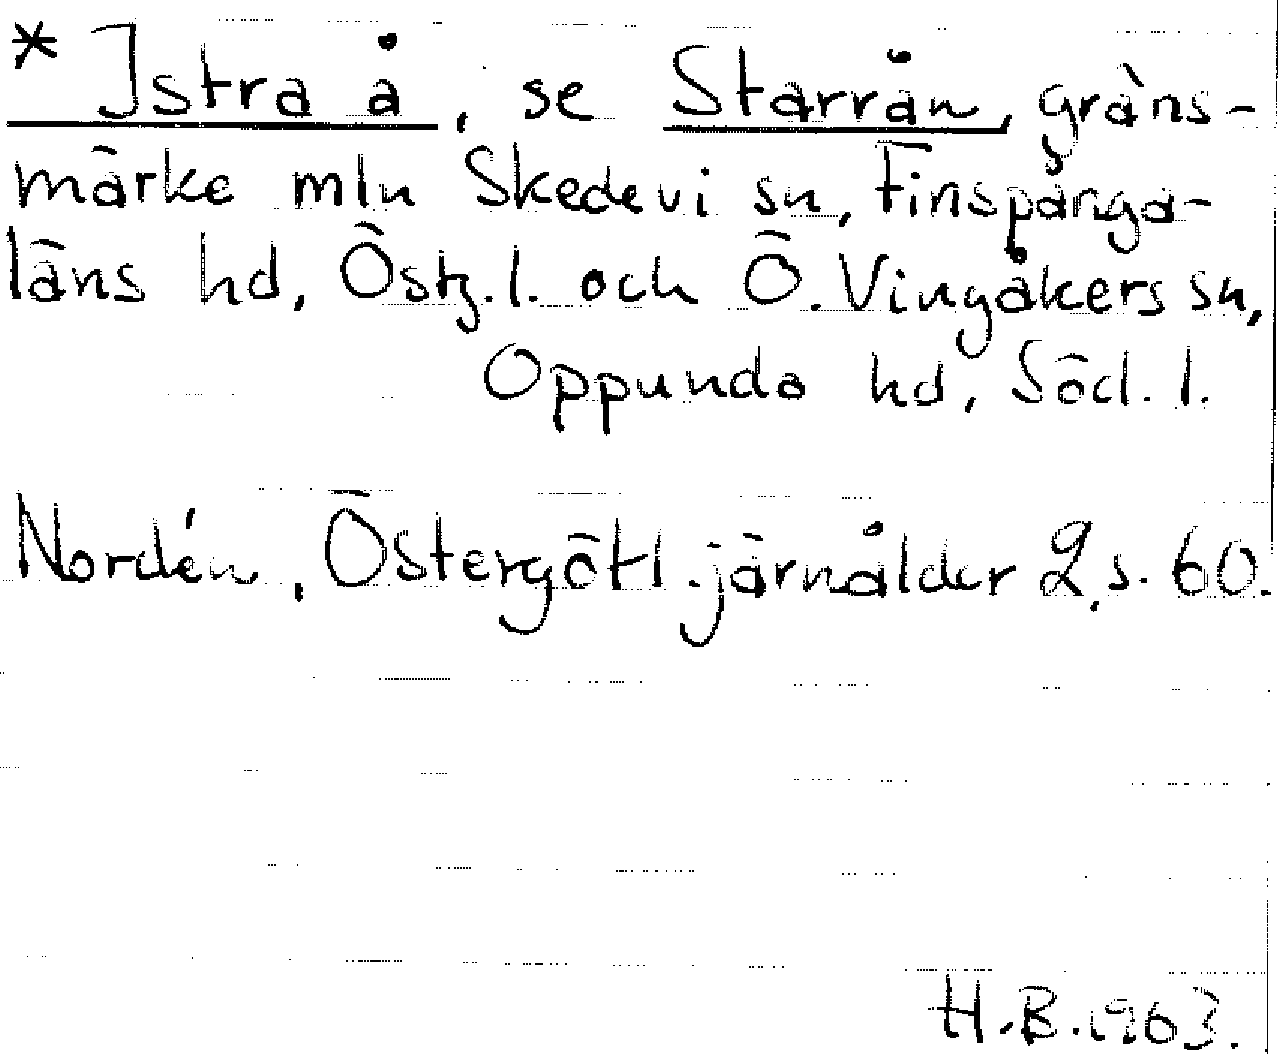 * Istra å, se Starrån, gräns-
märke mln Skedevi sn, Finspånga-
läns hd, Östg. l. och Ö. Vingåkers sn,
Oppunda hd, Söd. l.
Nordén, Östergötl. järnålder 2, s. 60.
H.B. 1963.